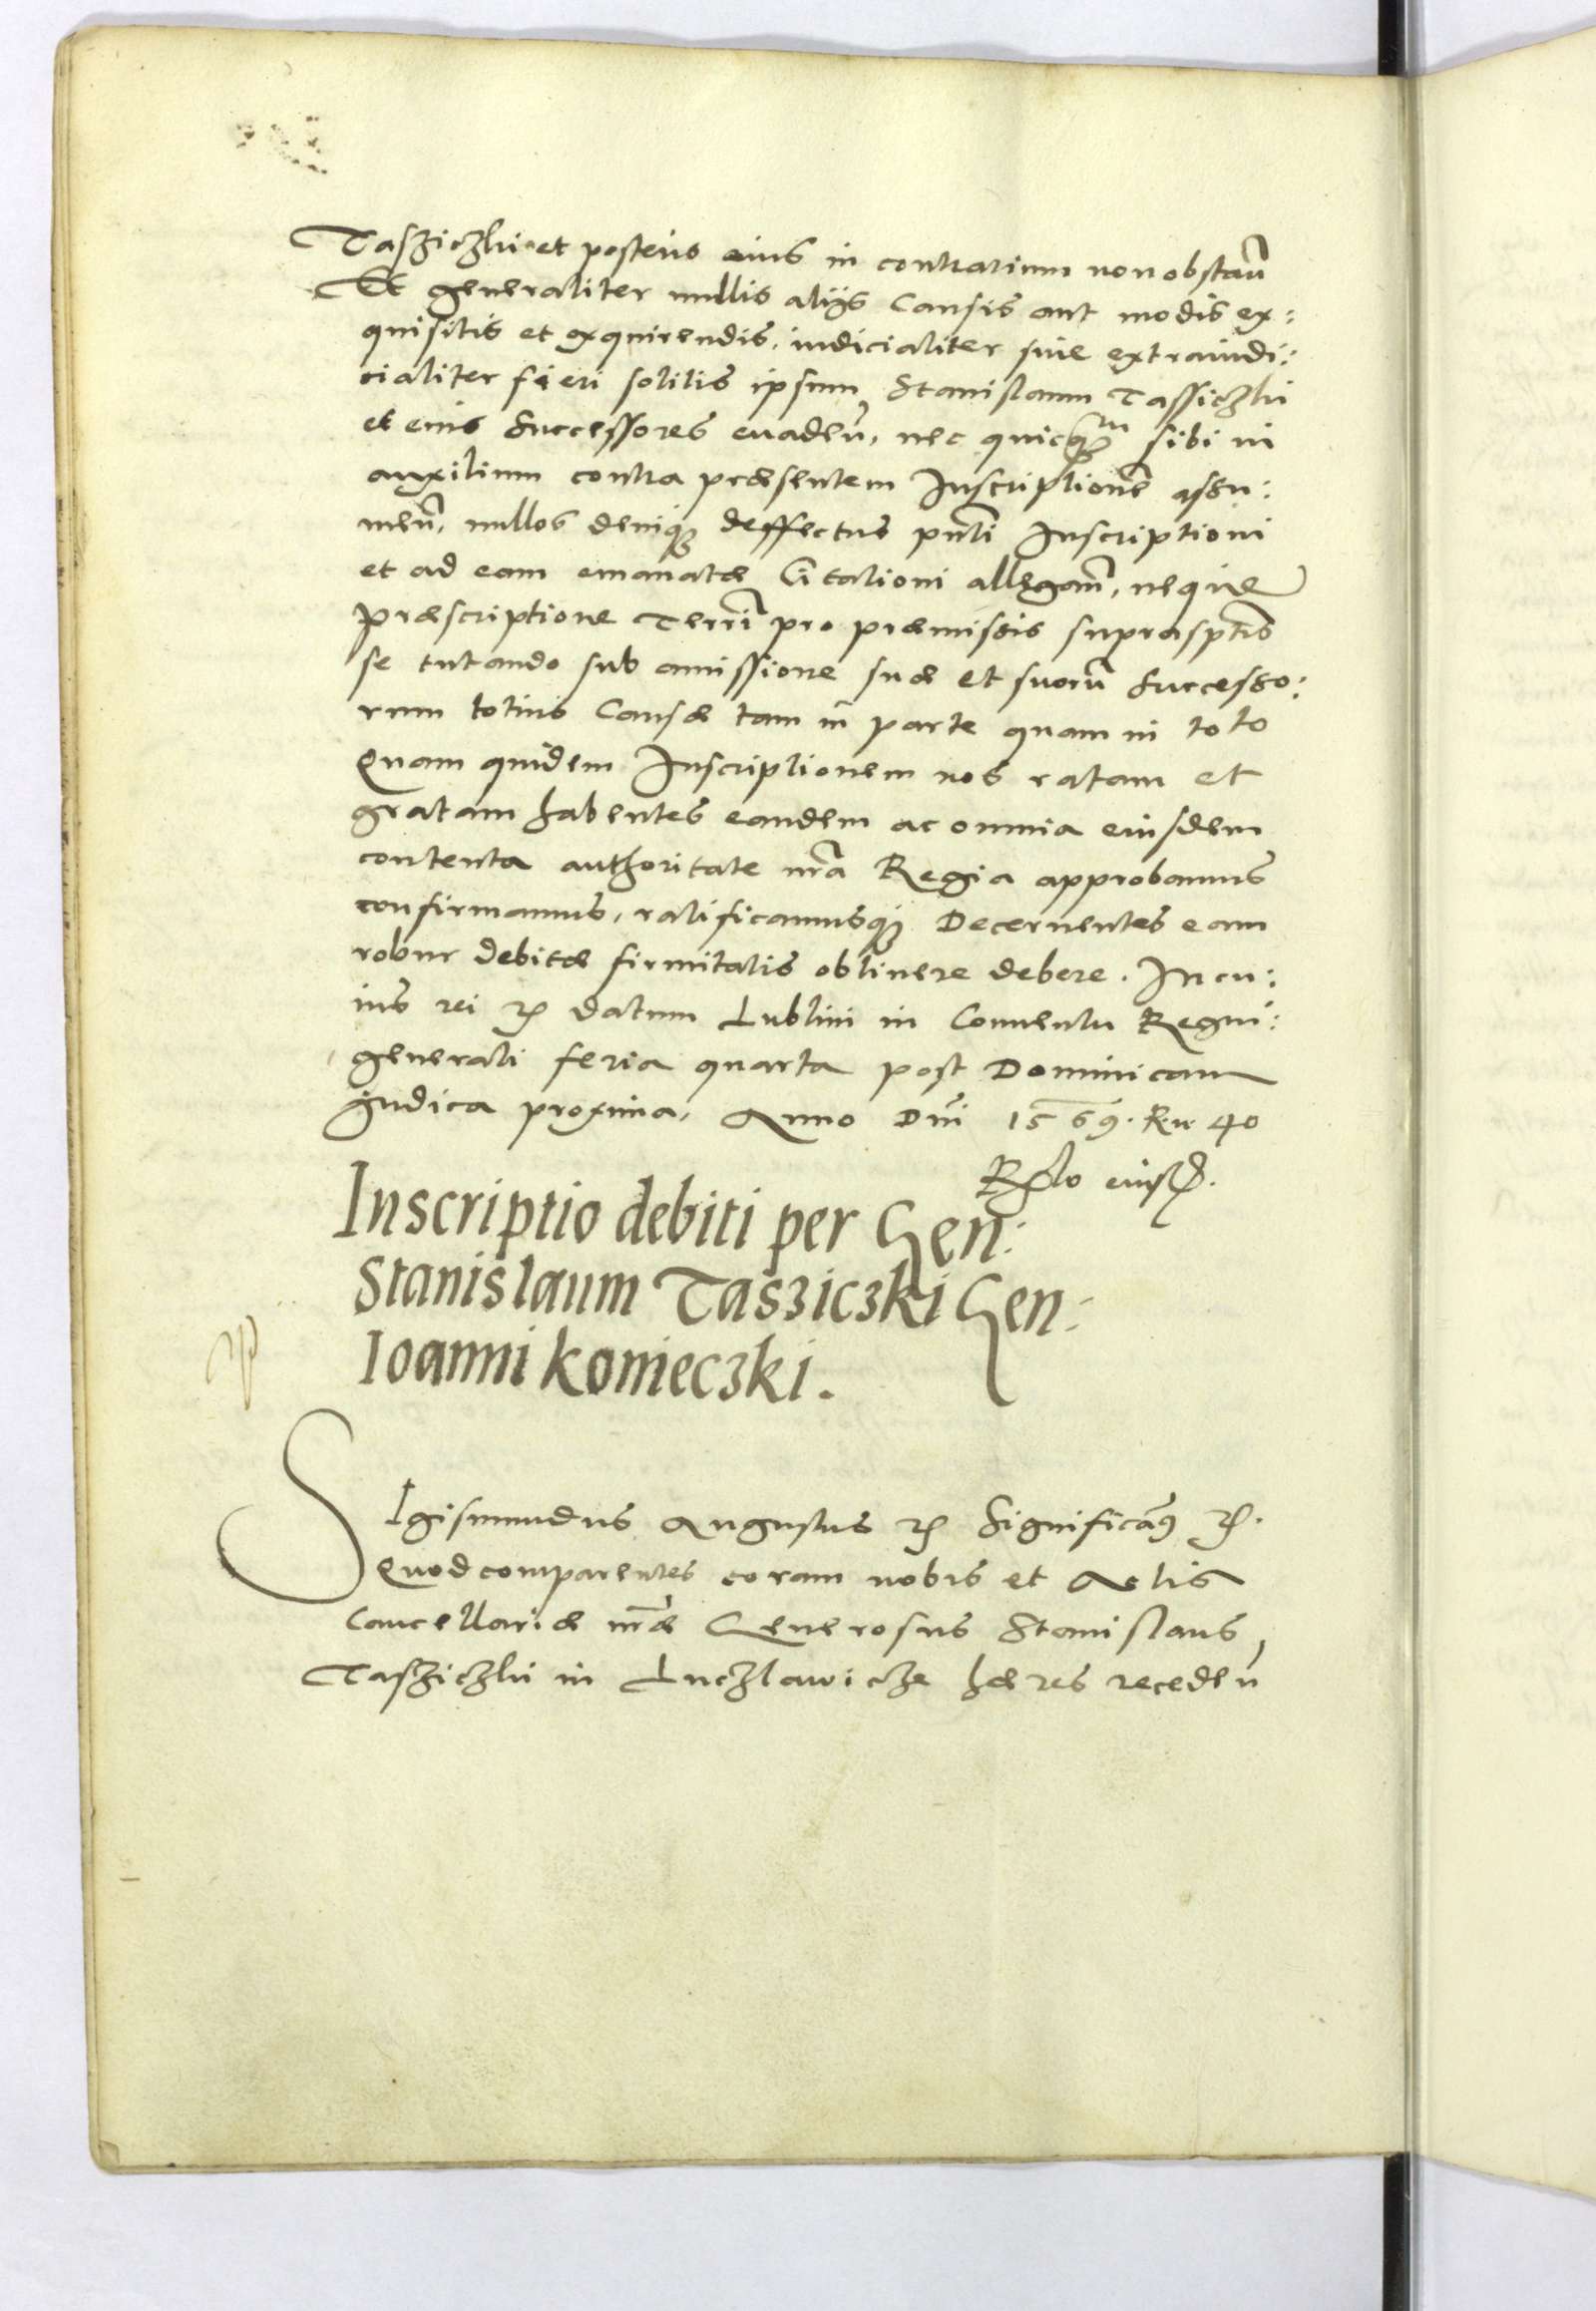 Tasziczki et posteris eius in contrarium non obstan̄
Et generaliter nullis alijs Causis aut modis ex:
quisitis et exquirendis, iudicialiter siue extraiudi:
cialiter fieri solitis ipsum Stanislaum Tassiczki
et eius Successores euaden̄, nec quicq̃m sibi in
auxilium contra præsentem Inscriptionē assu:
men̄, nullos deniq; deffectus pn̄ti Inscriptioni
et ad eam emanatæ Citationi allegan̄, neque
præscriptione Terr̄i pro præmissis suprasptis
se tutando sub amissione suæ et suorū Successo:
rum totius Causæ tam in parte quam in toto
Quam quidem Inscriptionem nos ratam et
gratam habentes eandem ac omnia eiusdem
contenta authoritate nr̄a Regia approbamus
confirmamus, ratificamusq; Decernentes eam
robur debitæ firmitatis obtinere debere. In cu:
ius rei ꝛc datum Lublini in Conuentu Regni:
generali feria quarta post Dominicam
Judica proxima, Anno Dn̄i 1569. R. n. 40
Rēlo eiusd.
Inscriptio debiti per Gen:
Stanislaum Tasziczki Gen:
Ioanni konieczki.
SIgismundus Augustus ꝛc Significam9 ꝛc.
Quod comparentes coram nobis et Actis
Cancellariæ nr̄æ Generosus Stanislaus
Tasziczki in Luczlawicze hæres receden̄